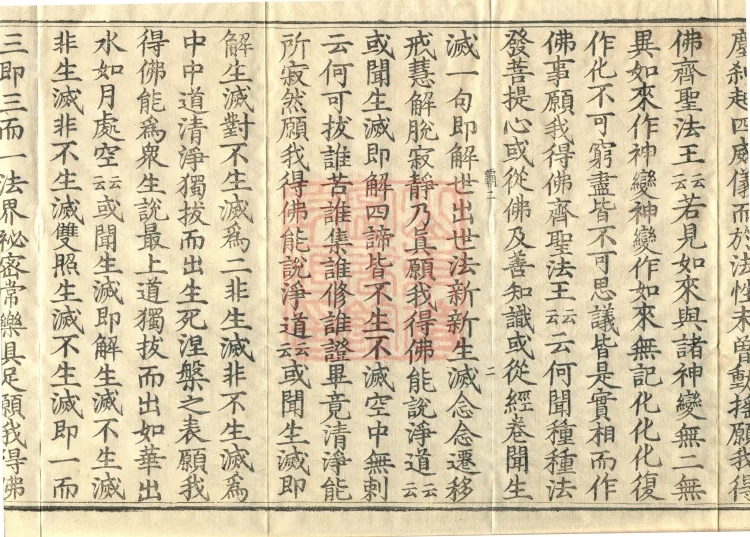 塵刹起四威儀而於法性未曽動搖願我得
佛齊聖法王云云若見如來與諸神變無二無
異如來作神變神變作如來無記化化化復
作化不可窮盡皆不可思議皆是實相而作
佛事願我得佛齊聖法王云云云何聞種種法
發菩提心或從佛及善知識或從經卷聞生
霸二
二
滅一句即解世出世法新新生滅念念遷移
戒慧解脫寂靜乃眞願我得佛能說淨道云云
或聞生滅即解四諦皆不生不滅空中無刺
云何可拔誰苦誰集誰修誰證畢竟清淨能
所寂然願我得佛能說淨道云云或聞生滅即
解生滅對不生滅爲二非生滅非不生滅爲
中中道清淨獨拔而出生死涅槃之表願我
得佛能爲衆生說最上道獨拔而出如華出
水如月處空云云或聞生滅即解生滅不生滅
非生滅非不生滅雙照生滅不生滅即一而
三即三而一法界祕密常樂具足願我得佛